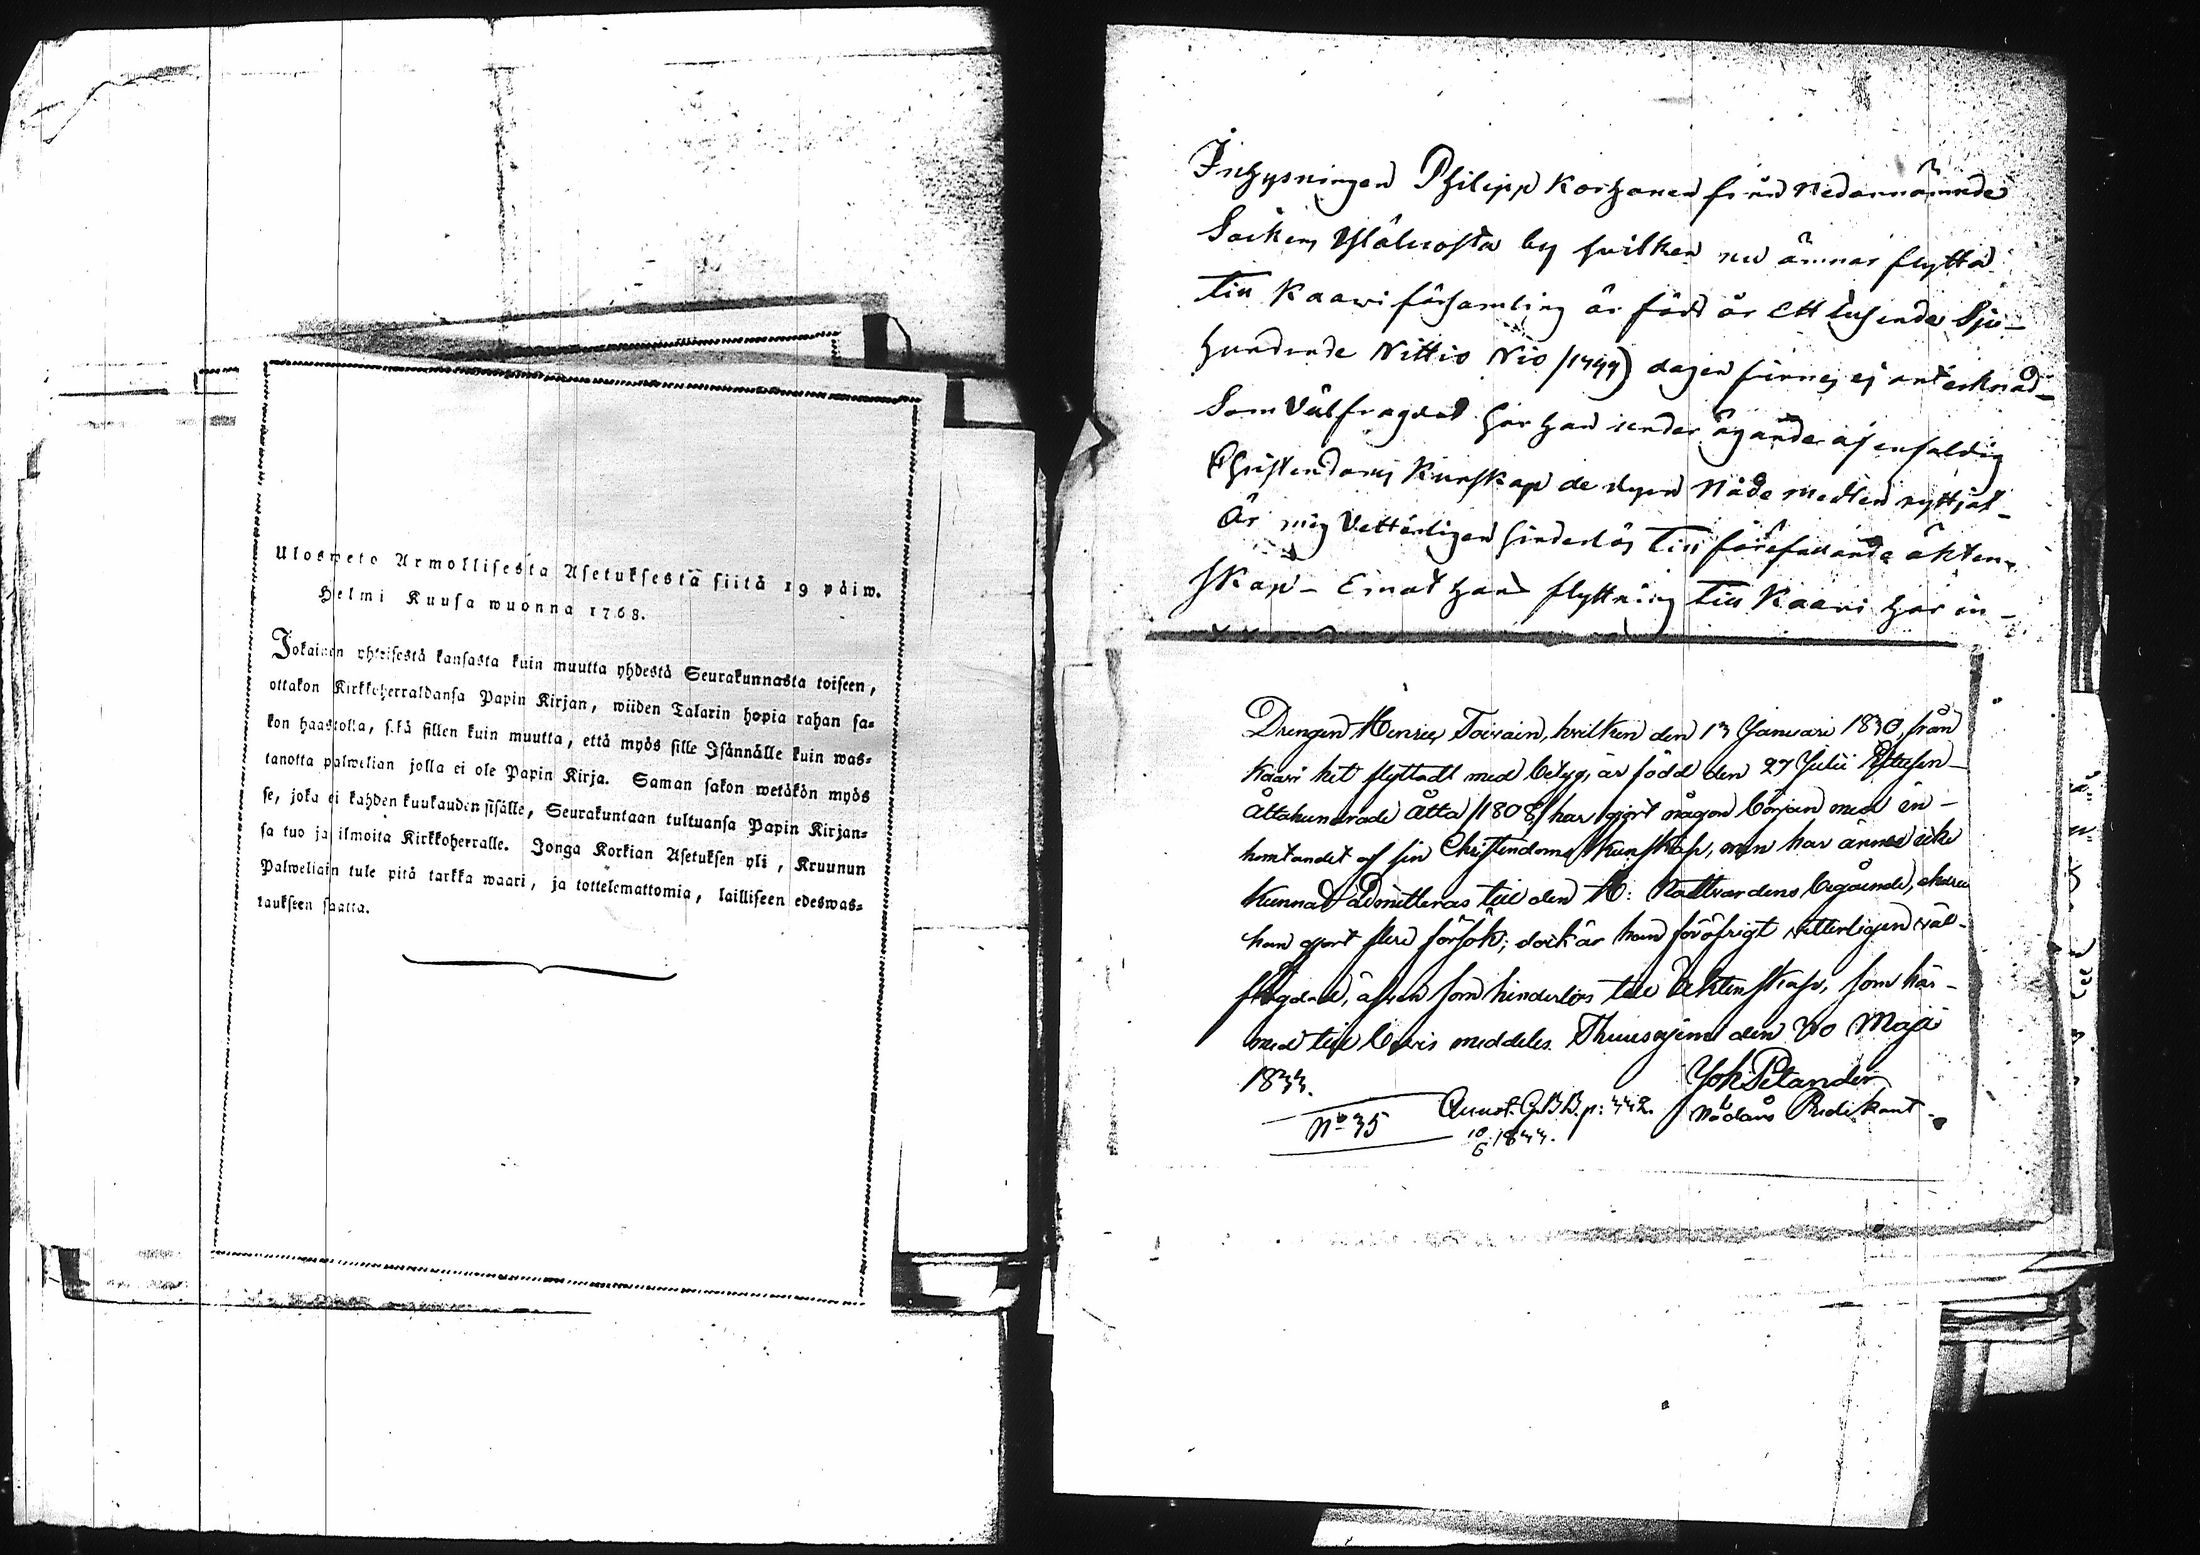 Ulosweto Armollisesta Asetuksesta siitä 19 päiw.
Helmi Kuusa wuonna 1768.
Jokainen yhteisestä kansasta kuin muutta yhdestä Seurakunnasta toiseen,
ottakon Kirkkoherraldansa Papin Kirjan, wiiden Talarin hopia rahan sa-
kon haastolla, sekä sillen kuin muutta, että myös sille Isännälle kuin was-
tanotta palwelian jolla ei ole Papin Kirja. Saman sakon wetäkön myös
se, joka ei kahden kuukauden sisälle, Seurakuntaan tultuansa Papin Kirjan-
sa tuo ja ilmoita Kirkkoherralle. Jonga Korkian Asetuksen yli, Kruunun
Palweliain tule pitä tarkka waari, ja tottelemattomia, lailliseen edeswas-
taukseen saatta.
Inhysningen Philipp Korhonen från Nedannämnde
Socken by hvilken nu ämnar flytta
till Kaavi församling är född år Ett tusende Sju-
hundrade Nittio Nio /1799) dagen finnes ej antecknad_
Som Välfrägdad har han under ägande af enfaldig
Christendoms Kunskap de dyra Nåde medlen nyttjat_
Är mig Vetterligen hinderlös Till förefallande äkten-
skap - Emot hans flyttning Till Kaavi har in-
Drengen Henric Toivain, hvilken den 13 Januari 1830, från
Kaavi hit flyttadt med betyg, är född den 27 Julii
Åttahundrade Åtta /1808/ har gjort någon början med in-
hemtandet af sin Christendoms Kunskap, men har ännu icke
kunnat admitteras till den H: Nattvardens begående, ehuru
han gjort flere försök; dock är han föröfrigt vetterligen väl-
frägdad, äfven som hinderlös till Äktenskap, som här-
med till bevis meddeles. Thuusnjemi den 30 Maji
1833.
Joh Petander
Nådårs Predikant.
No 35
Annot. C.B.B. p: 442.
10/6 1833.